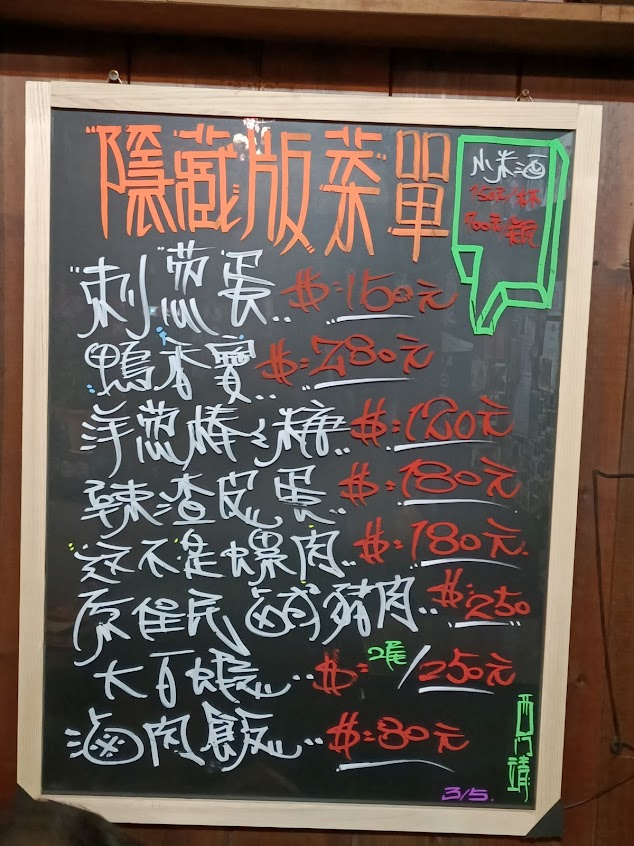 隱藏版菜單
小米酒
150元/杯
700元/瓶
刺蔥蛋..$:150元
鴨香寶$:280元
洋蔥棒棒糖..$:120元
辣渣皮蛋..$:180元
這不是螺肉..$:180元
原住民鹵豬肉..$:250
大百蝦...$:2尾/250元
滷肉飯...$:80元
西門靖
3/5.